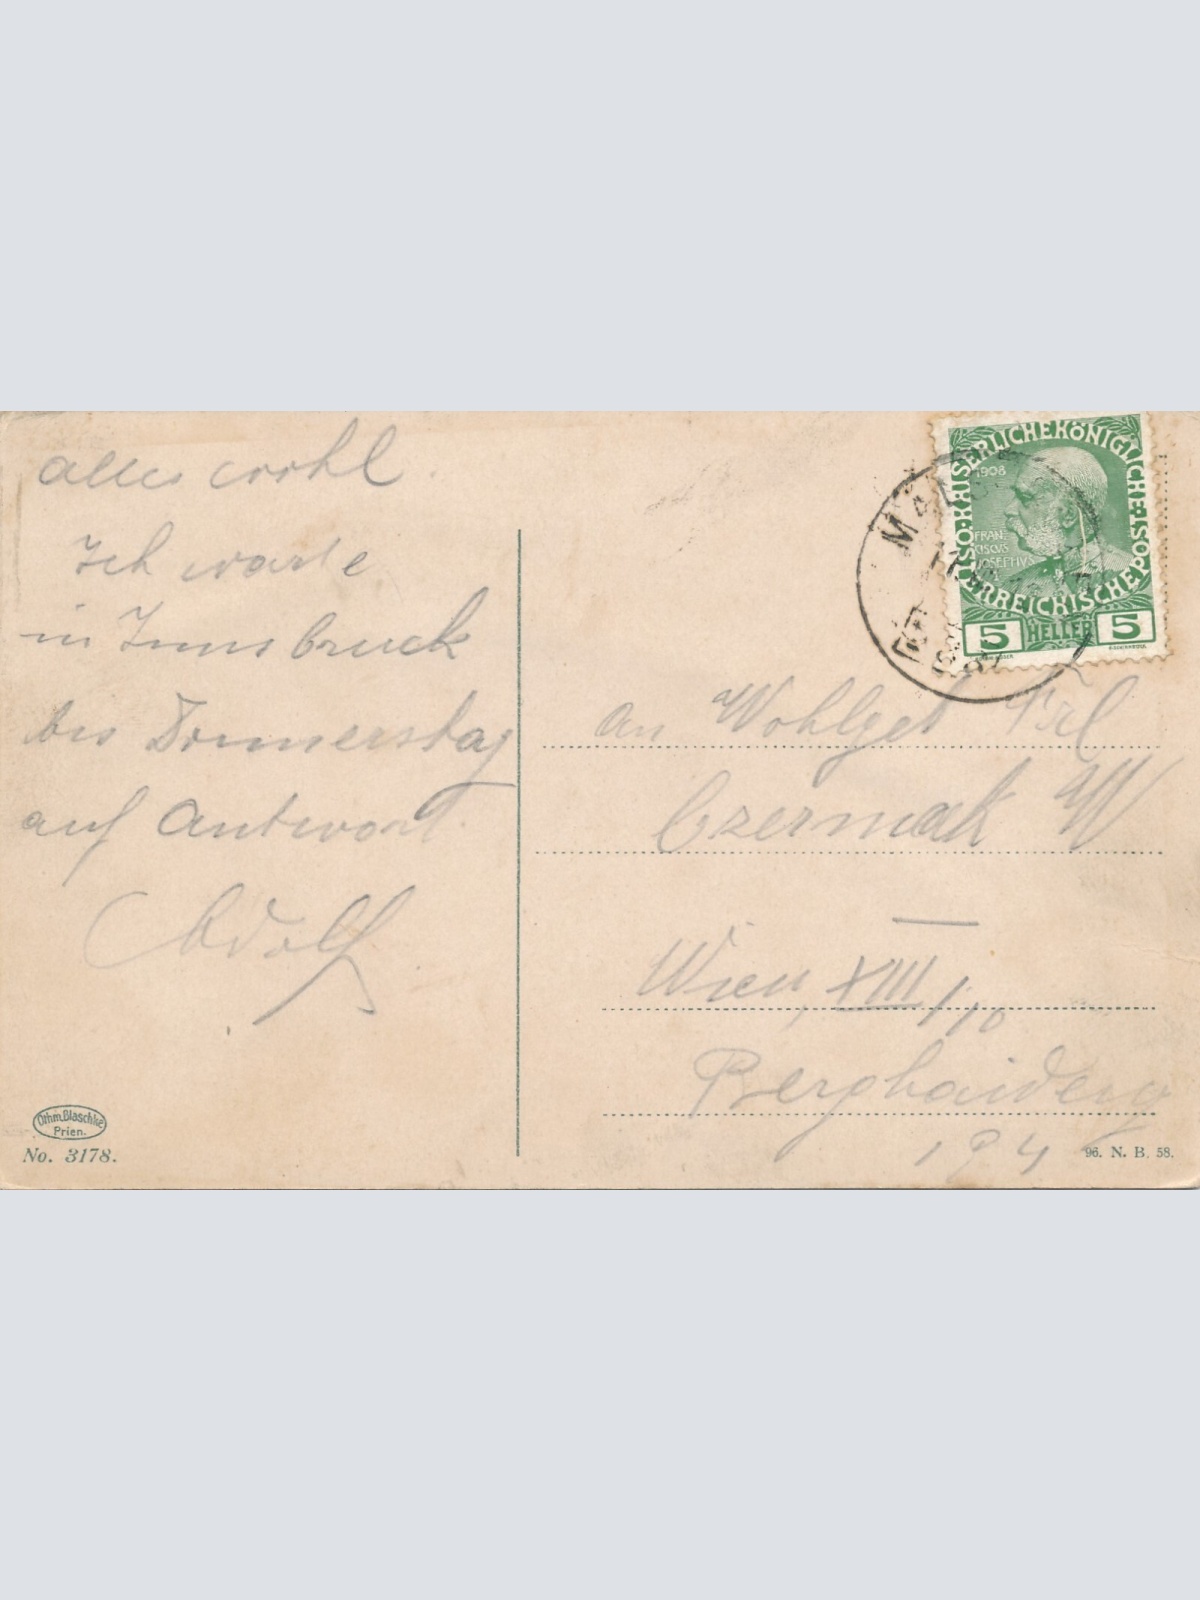 alles wohl
Ich warte
in Innsbruck
bis Donnerstag
auf Antwort.
Adolf
Othm. Blaschke
Prien.
No. 3178.
KAISERLICHE KÖNIGLICHE ÖSTERREICHISCHE POST
1908
FRAN
CISCVS
JOSEPHVS
5 HELLER 5
An Wohlgeb Frl
Czermak W
Wien, XIII/10
194
96. N. B. 58.